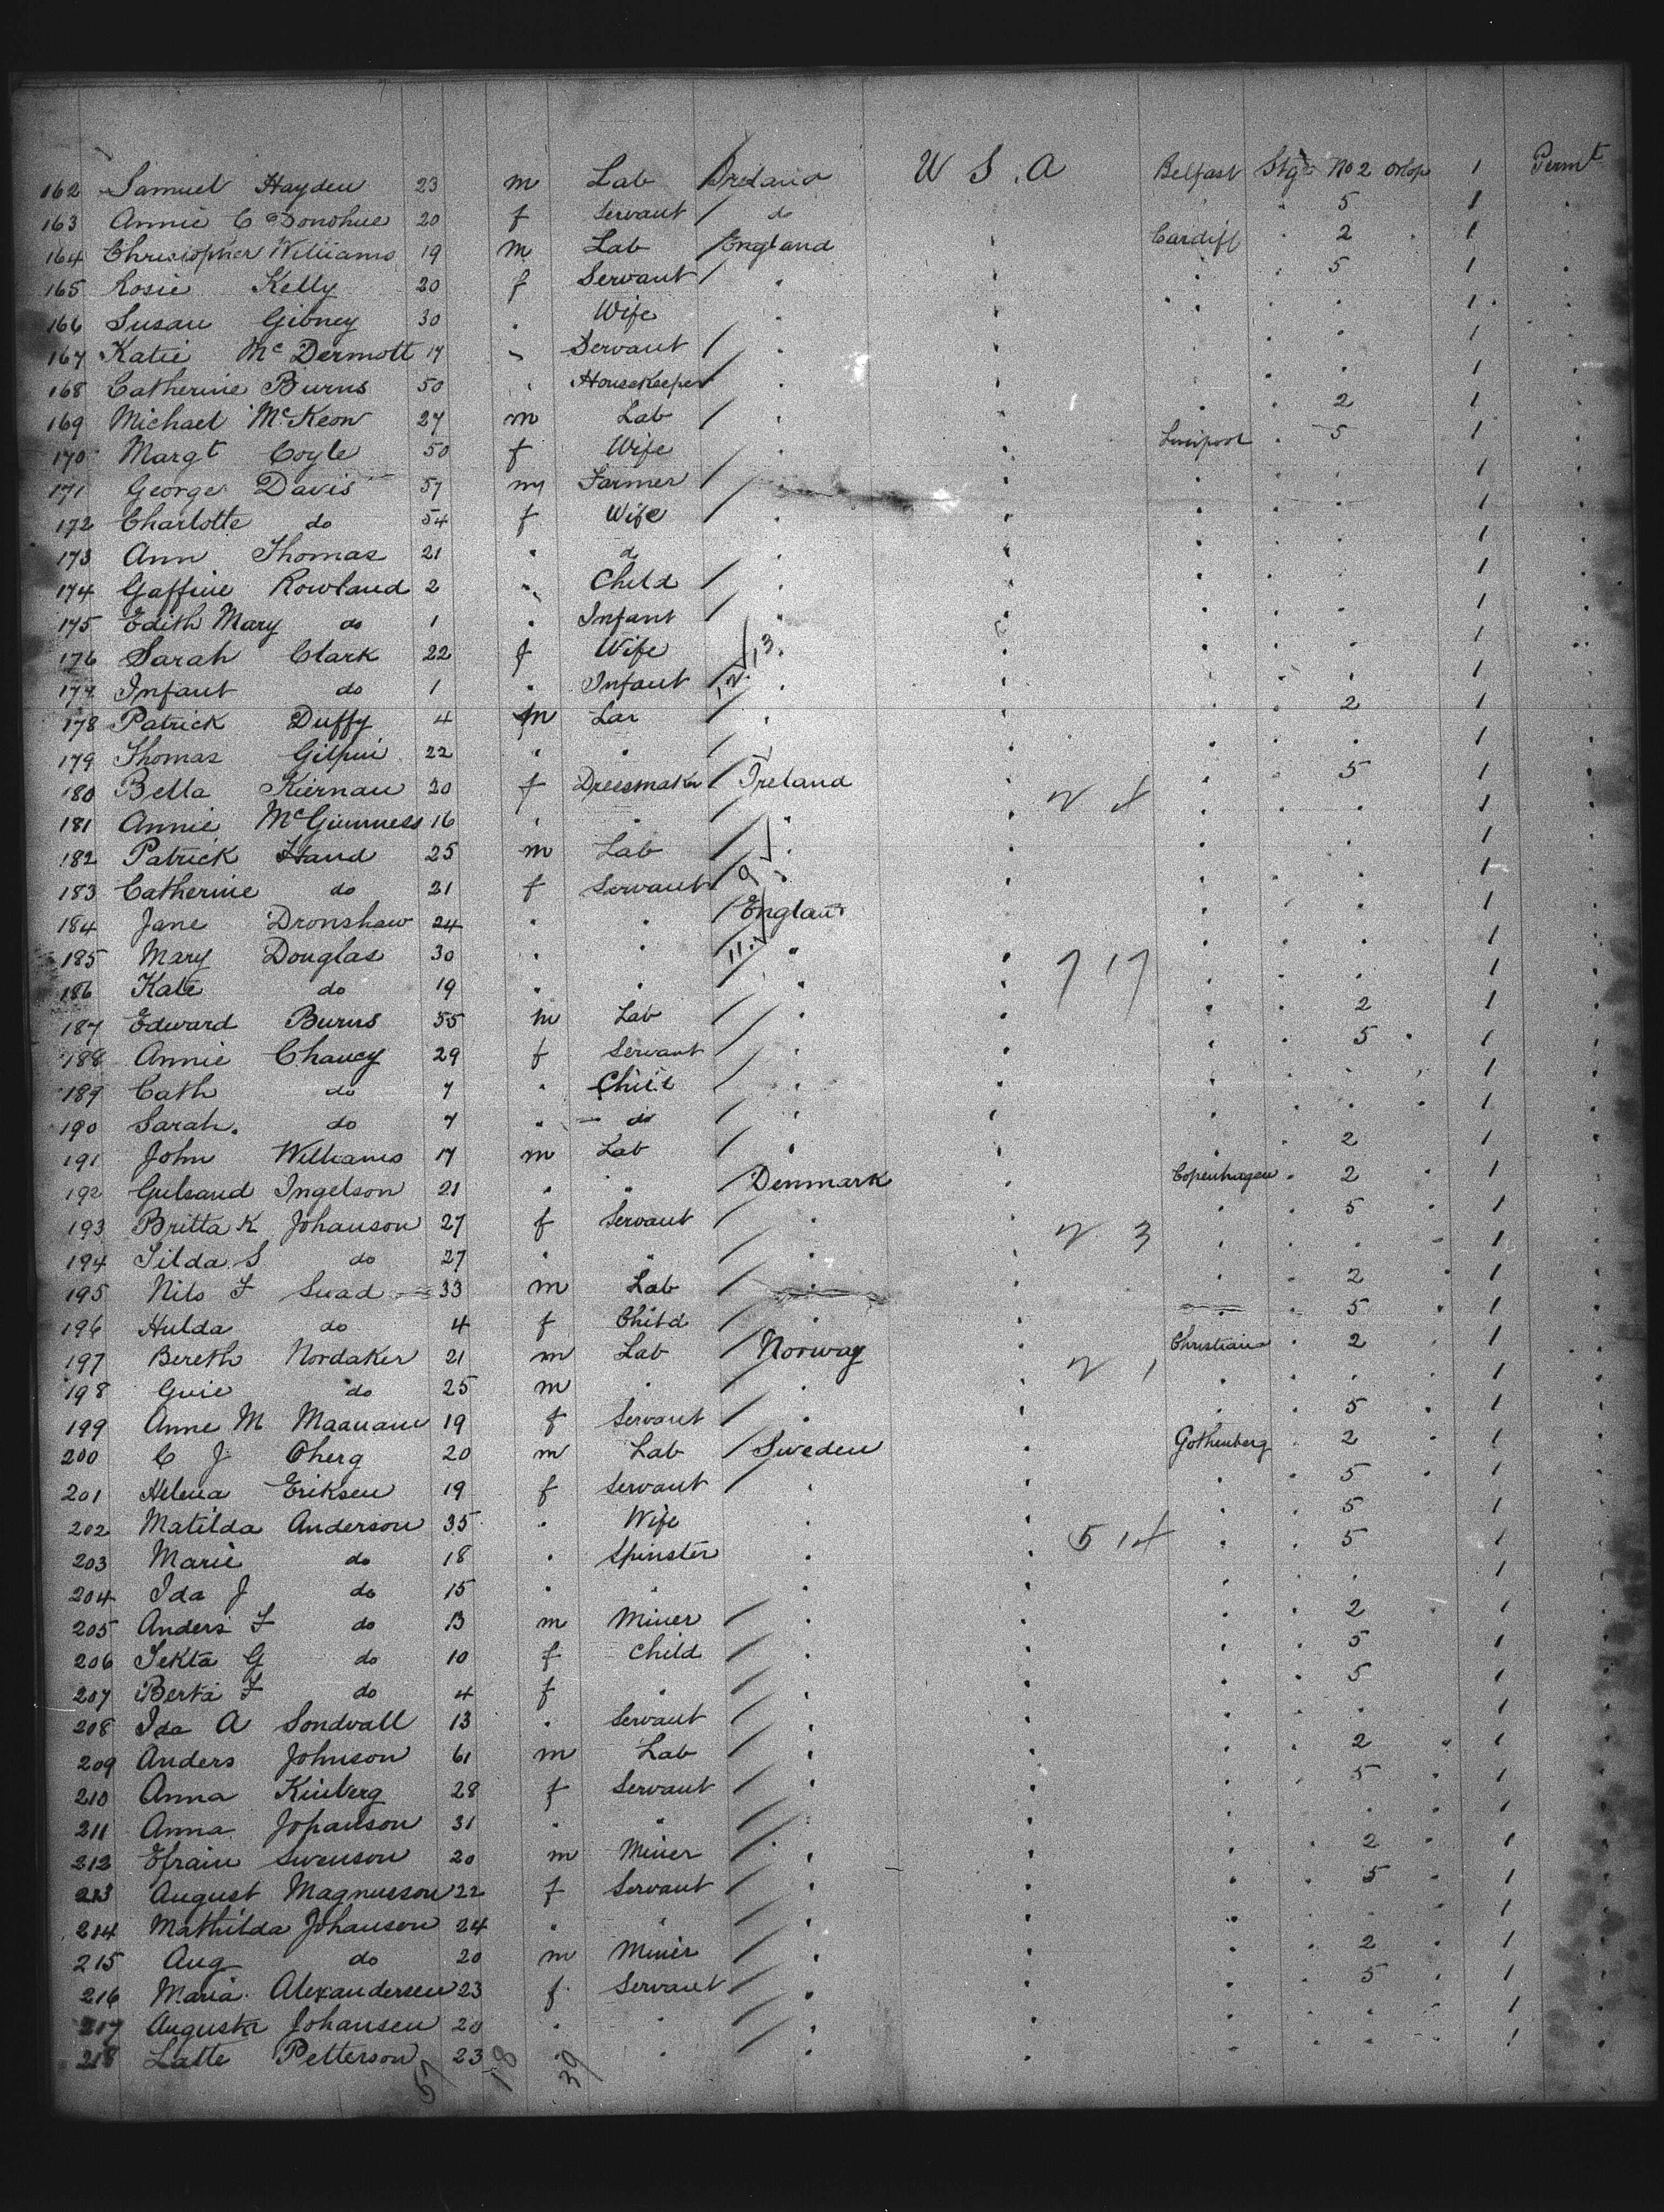 162 Samuel Hayden 23 m Lab Ireland U S. A Belfast Stge No 2 Orlop 1 Permt
163 Annie C Donohue 20 f Servant / do " " 5 1 "
164 Christopher Williams 19 m Lab / England " Cardiff " 2 " 1
165 Rosie Kelly 20 f Servant / " " " " 5 1 "
166 Susan Gibney 30 " Wife " " " " " 1 "
167 Katie Mc Dermott 17 " Servant / " " " " 1 "
168 Catherine Burns 50 " Housekeeper " " " " " 1 "
169 Michael McKeon 27 m Lab / " " " " 2 1 "
170 Margt Coyle 50 f Wife / " " Liverpool " 5 1 "
171 George Davis 57 m Farmer / " " " " 1 "
172 Charlotte do 54 f Wife / " " " " " 1 "
173 Ann Thomas 21 " d " " " " " 1 "
174 Gaffine Rowland 2 " Child / " " " " " 1 "
175 Edith Mary do 1 " Infant / " " " " " 1 "
176 Sarah Clark 22 f Wife 13 " " " " " 1 "
177 Infant do 1 " Infant / 12 " " " " " 1 "
178 Patrick Duffy 4 m Lar / " " " " 2 1 "
179 Thomas Gilpin 22 " " / " " " " 1 "
180 Bella Kiernan 20 f Dressmaker / Ireland " " " 5 1 "
181 Annie McGuinness 16 " " / " " " " " 1 "
182 Patrick Hand 25 m Lab / " " " " " 1 "
183 Catherine do 21 f Servant / 9 " " " " " 1 "
184 Jane Dronshaw 24 " " / England " " " " 1 "
185 Mary Douglas 30 " " 11 / " " 7 17 " " " 1 "
186 Kate do 19 " " / " " " " " 1 "
187 Edward Burns 55 m Lab / " " " " 2 1 "
188 Annie Chaucy 29 f Servant / " " " " 5 " 1 "
189 Cath do 7 " Child / " " " " " 1 "
190 Sarah. do 7 " do / " " " " " 1 "
191 John Williams 17 m Lab / " " " " 2 1 "
192 Gulsaud Ingelson 21 " " Denmark " Copenhagen " 2 " 1 "
193 Britta K Johanson 27 f Servant / " " " " 5 " 1 "
194 Tilda S do 27 " " / " " 3 " " " 1 "
195 Nils F Swad 33 m Lab / " " " " 2 " 1 "
196 Hulda do 4 f Child / " " " 5 " 1 "
197 Bereth Nordaker 21 m Lab / Norway " Christiana " 2 " 1 "
198 Guie do 25 m " / " " 1 " " " 1 "
199 Anne M 19 f Servant / " " " " 5 " 1 "
200 C J Oherg 20 m Lab / Sweden " Gothenberg " 2 " 1 "
201 Helena Eriksen 19 f Servant " " " " 5 " 1 "
202 Matilda Anderson 35 " Wife " " " " 5 1 "
203 Marie do 18 " Spinster " " 5 14 " " 5 1 "
204 Ida J do 15 " " " " " " " 1 "
205 Anders F do 13 m Miner / " " " " 2 " 1 "
206 Tekta G do 10 f Child / " " " " 5 1 "
207 Berta F do 4 f " / " " " " 5 1 "
208 Ida A Sondvall 13 " Servant / " " " " " 1 "
209 Anders Johnson 61 m Lab / " " " " 2 " 1 "
210 Anna Kinberg 28 f Servant / " " " " 5 " 1 "
211 Anna Johanson 31 " " / " " " " " 1 "
212 Efraim Swenson 20 m Miner / " " " " 2 " 1 "
213 August Magnusson 22 f Servant / " " " " 5 " 1 "
214 Mathilda Johanson 24 " " / " " " " " 1 "
215 Aug do 20 m Miner / " " " " 2 " 1 "
216 Maria Alexandersen 23 f Servant / " " " " 5 " 1 "
217 Augusta Johansen 20 " " / " " " " " 1 "
218 Latte Petterson 23 " " / " " " " " 1 "
57 18 39